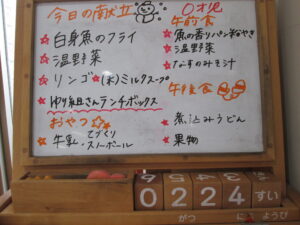 今日の献立
白身魚のフライ
温野菜
リンゴ (米)ミルクスープ
ゆり組さんランチボックス
おやつ
牛乳・てづくりスノーボール
0才児
午前食
魚の香りパン粉やき
温野菜
なすのみそ汁
午後食
煮込みうどん
果物
0 2 2 4 すい
がつ にち ようび